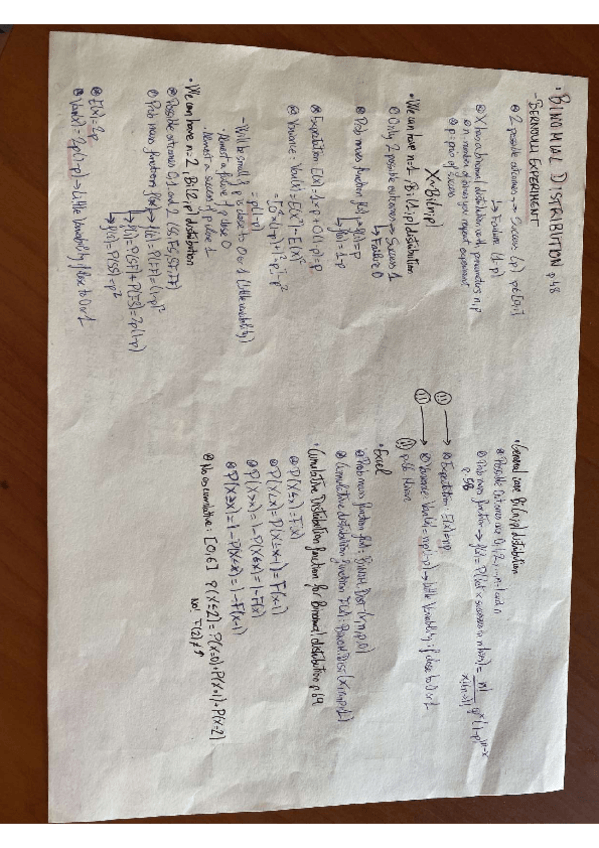 • BINOMIAL DISTRIBUTION p.48
- BERNOULLI EXPERIMENT
⊛ 2 possible outcomes → Success (p) p∈[0,1]
↳ Failure (1-p)
⊛ X has a binomial distribution with parameters n, p
⊛ n: number of times you repeat experiment
⊛ p: prob of success
X~Bi(n,p)
• We can have n=1, Bi(1,p) distribution
⊛ Only 2 possible outcomes → Success 1
↳ Failure 0
⊛ Prob mass function f(x) → f(1)=p
↳ f(0)=1-p
⊛ Expectation E(X)=1×p+0(1-p)=p
⊛ Variance: Var(X)=E(X²)-E(X)²
=[0²×(1-p)+1²×p]-p²
=p(1-p)
- Will be small if p is close to 0 or 1 (little variability)
· Almost a failure if p close 0
· Almost a success if p close 1
• We can have n=2, Bi(2,p) distribution
⊛ Possible outcomes 0,1 and 2 (SS, FS, SF, FF)
⊛ Prob mass functions f(x) → f(0)=P(FF)=(1-p)²
↳ f(1)=P(SF)+P(FS)=2p(1-p)
↳ f(2)=P(SS)=p²
⊛ E(X)=2p
⊛ Var(X)=2p(1-p) → Little Variability if close to 0 or 1
• General case Bi(n,p) distribution
⊛ Possible outcomes are 0,1,2,...,n-1 and n
⊛ Prob mass function → f(x)=P(Get x successes in n trials)= n!/x!(n-x)! p^x (1-p)^{n-x}
p.58
⊛ Expectation: E(X)=np
⊛ Variance: Var(X)=np(1-p) → little Variability if close to 0 or 1
p66
• Excel
⊛ Prob mass function f(x): BINOM.Dist(x,n,p,0)
⊛ Cumulative distribution function F(x): BINOM.Dist(x,n,p,1)
• Cumulative Distribution function for Binomial distribution p 69
⊛ P(X≤x)=F(x)
⊛ P(X<x)=P(X≤x-1)=F(x-1)
⊛ P(X>x)=1-P(X≤x)=1-F(x)
⊛ P(X≥x)=1-P(X<x)=1-F(x-1)
⊛ No es cumulative: [0,6] P(X≤2)=P(X=0)+P(X=1)+P(X=2)